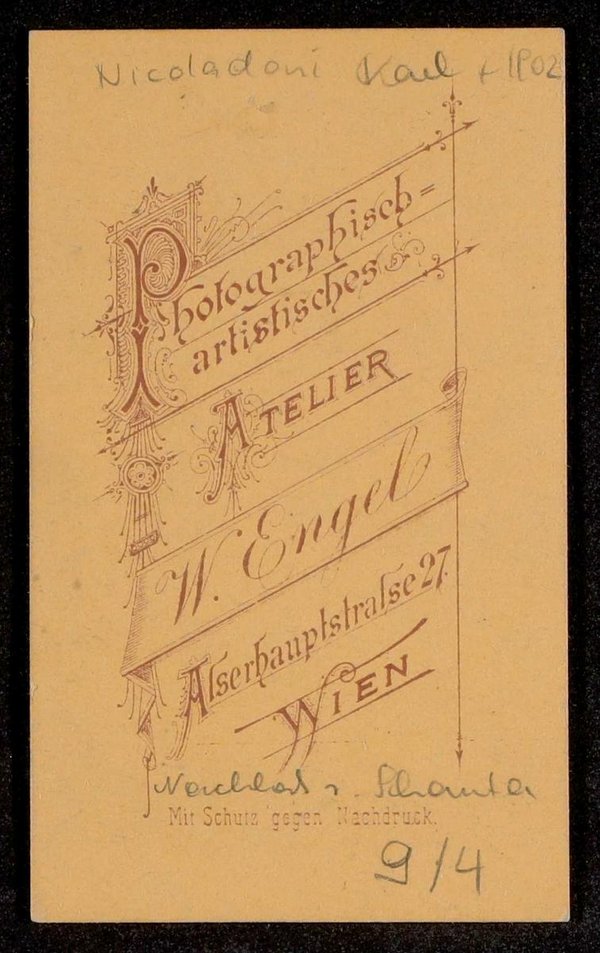 Nicoladoni Karl + 1902
Photographisch=
artistisches
ATELIER
W. Engel
Alserhauptstraſse 27
WIEN
Nachlass v. Schauta
Mit Schutz gegen Nachdruck.
9/4